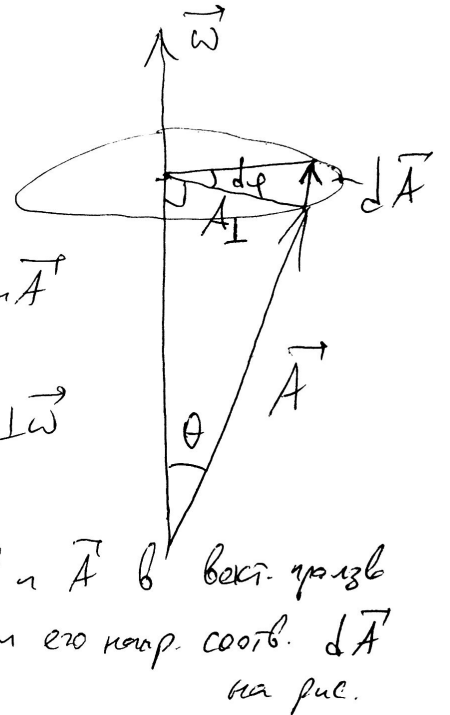 ω⃗
dφ
dA⃗
A⊥
и A⃗
A⃗
⊥ω⃗
θ
и A⃗ в вект. произв
его напр. соотв. dA⃗
на рис.